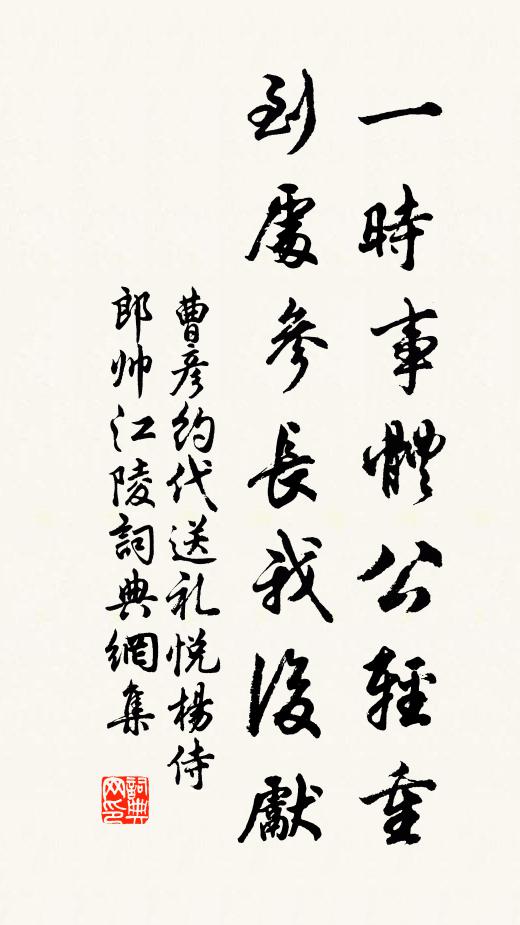 一時事體公輕重
到處參長我後獻
曹彥約代送礼悦楊侍
郎帅江陵詞典網集
詞典网印